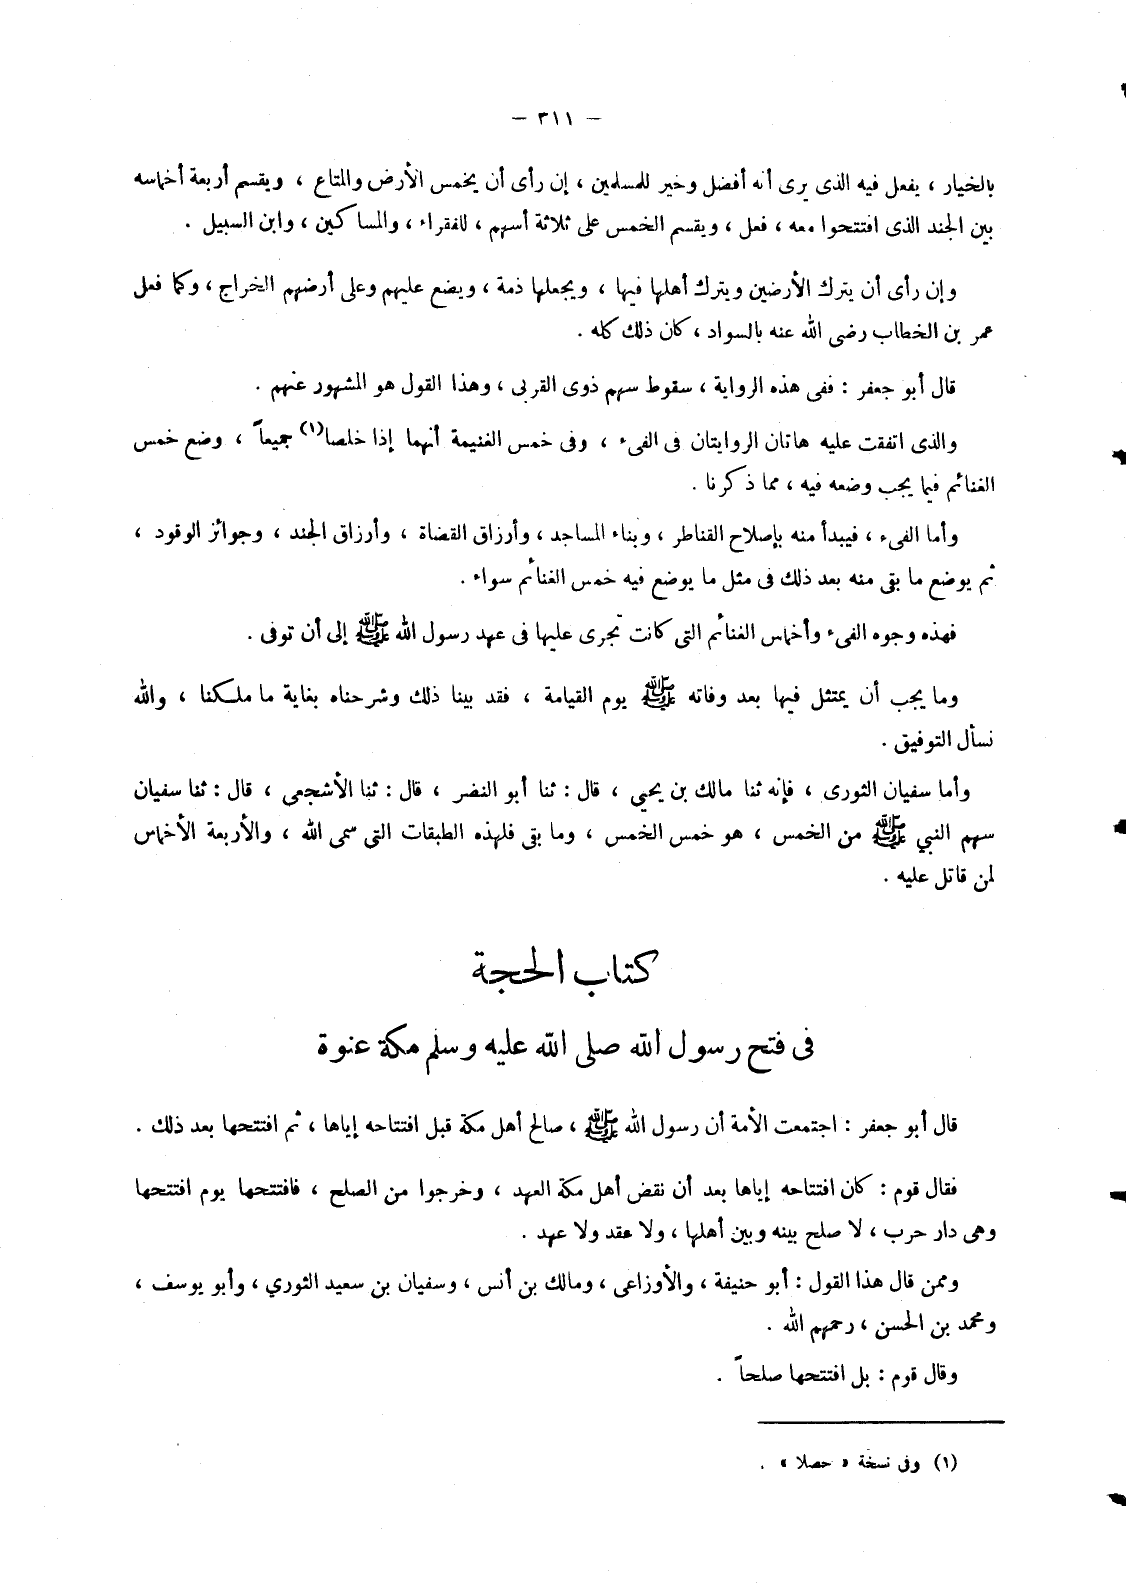 — ٣١١ —
بالخيار ، يفعل فيه الذى يرى أنه أفضل وخير للمسلمين ، إن رأى أن يخمس الأرض والمتاع ، ويقسم أربعة أخماسه
بين الجند الذى افتتحوا معه ، فعل ، ويقسم الخمس على ثلاثة أسهم ، للفقراء ، والمساكين ، وابن السبيل .
وإن رأى أن يترك الأرضين ويترك أهلها فيها ، ويجعلها ذمة ، ويضع عليهم وعلى أرضهم الخراج ، وكما فعل
عمر بن الخطاب رضى الله عنه بالسواد ، كان ذلك كله .
قال أبو جعفر : ففى هذه الرواية ، سقوط سهم ذوى القربى ، وهذا القول هو المشهور عنهم .
والذى اتفقت عليه هاتان الروايتان فى الفىء ، وفى خمس الغنيمة أنهما إذا خلصا(١) جميعاً ، وضع خمس
الغنائم فيما يجب وضعه فيه ، مما ذكرنا .
وأما الفىء ، فيبدأ منه بإصلاح القناطر ، وبناء المساجد ، وأرزاق القضاة ، وأرزاق الجند ، وجوائز الوقود ،
ثم يوضع ما بقى منه بعد ذلك فى مثل ما يوضع فيه خمس الغنائم سواء .
فهذه وجوه الفىء وأخماس الغنائم التى كانت تجرى عليها فى عهد رسول الله ﷺ إلى أن توفى .
وما يجب أن يمتثل فيها بعد وفاته ﷺ يوم القيامة ، فقد بينا ذلك وشرحناه بغاية ما ملكنا ، والله
نسأل التوفيق .
وأما سفيان الثورى ، فإنه ثنا مالك بن يحيي ، قال : ثنا أبو النضر ، قال : ثنا الأشجعى ، قال : ثنا سفيان
سهم النبي ﷺ من الخمس ، هو خمس الخمس ، وما بقى فلهذه الطبقات التى سمى الله ، والأربعة الأخماس
لمن قاتل عليه .
كتاب الحجة
فى فتح رسول الله صلى الله عليه وسلم مكة عنوة
قال أبو جعفر : اجتمعت الأمة أن رسول الله ﷺ ، صالح أهل مكة قبل افتتاحه إياها ، ثم افتتحها بعد ذلك .
فقال قوم : كان افتتاحه إياها بعد أن نقض أهل مكة العهد ، وخرجوا من الصلح ، فافتتحها يوم افتتحها
وهى دار حرب ، لا صلح بينه وبين أهلها ، ولا عقد ولا عهد .
وممن قال هذا القول : أبو حنيفة ، والأوزاعى ، ومالك بن أنس ، وسفيان بن سعيد الثوري ، وأبو يوسف ،
ومحمد بن الحسن ، رحمهم الله .
وقال قوم : بل افتتحها صلحاً .
(١) وفى نسخة « حصلا » .